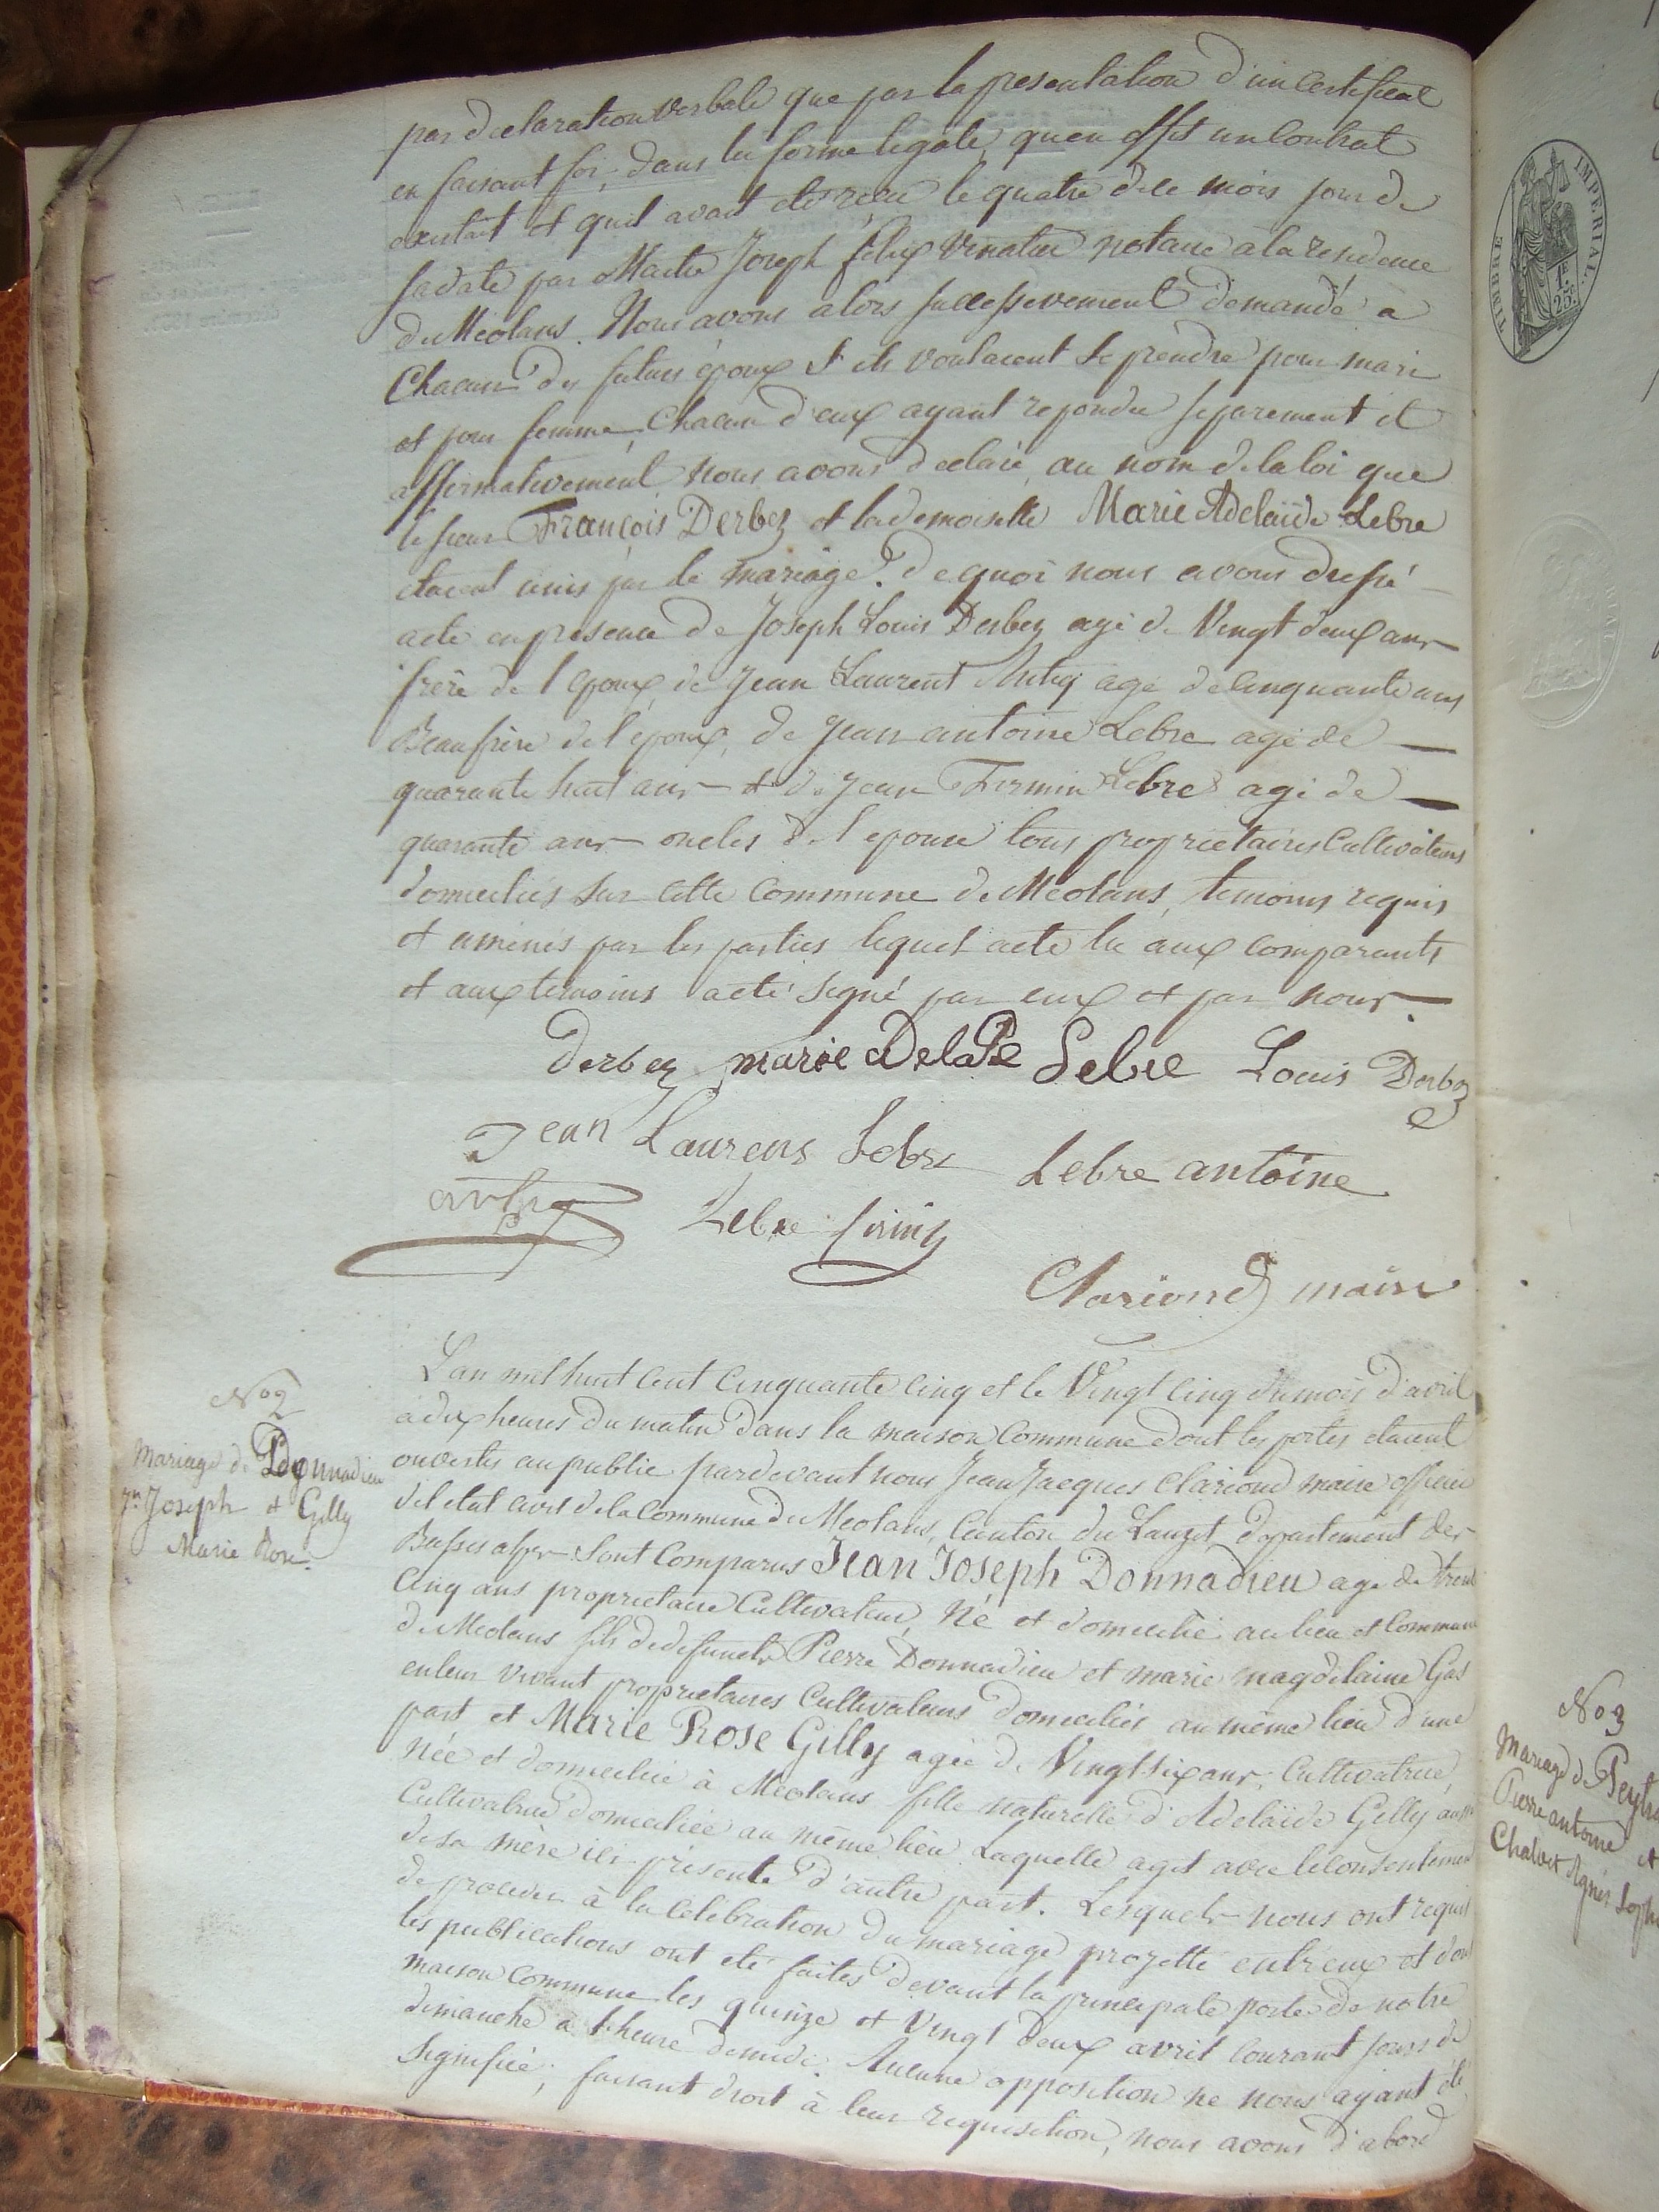 par declaration verbale que par la presentation d'un Certificat
en faisant foi, dans la forme legale, qu'en effet un Contrat
existant et quil avait été reçu le quatre de ce mois jour de
sa date par Maitre Joseph felix notaire a la residence
du Méolans. Nous avons alors successivement demandé à
Chacun des futurs époux s'ils voulaient se prendre pour mari
et pour femme, Chacun d'eux ayant repondu separement et
affirmativement, nous avons declaré, au nom de la loi que
le sieur François Derbez et la demoiselle Marie Adelaïde Lebre
étaient unis par le mariage. de quoi nous avons dressé
acte en presence de Joseph Louis Derbez agé de Vingt deux ans
frère de l'epoux, de Jean Laurent agé de Cinquante ans
Beaufrère de l'époux, de Jean antoine Lebre agé de
quarante huit ans et de Jean Firmin Lebre agé de
quarante ans oncles de l'epouse tous proprietaires Cultivateurs
domiciliés sur cette Commune de Meolans, temoins requis
et amenés par les parties lequel acte lu aux Comparants
et aux temoins a eté signé par eux et par nous.
Derbez marie Lebre Louis Derbez
Jean Laurens Lebre Lebre antoine
Lebre firmin
Clariond maire
No 2
Mariage de Donnadieu
Jn Joseph et Gilly
Marie Rose.
L'an mil huit Cent Cinquante Cinq et le Vingt Cinq du mois d'avril
à dix heures du matin dans la maison Commune dont les portes etaient
ouvertes au public pardevant nous Jean Jacques Clariond maire officier
de l'etat civil de la Commune du Meolans, Canton du Lauzet, departement des
Basses alpes. Sont Comparus Jean Joseph Donnadieu age de trente
Cinq ans proprietaire Cultivateur, Né et domicilié au lieu et Commune
de Meolans fils de defuncts Pierre Donnadieu et marie magdelaine Gas
en leur vivant proprietaires Cultivateurs domiciliés au même lieu d'une
part et Marie Rose Gilly agée de Vingt six ans, Cultivatrice,
Née et domiciliée à Meolans fille naturelle d'Adelaïde Gilly aussi
Cultivatrice domiciliée au même lieu Laquelle agit avec le consentement
de sa mère ici présente d'autre part. Lesquels nous ont requis
de proceder à la Célébration du mariage projetté entr'eux et dont
les publications ont été faites devant la principale porte de notre
maison Commune les quinze et Vingt deux avril Courant jours de
dimanche à l'heure de midi. Aucune opposition ne nous ayant été
signifiée, faisant droit à leur requisition, nous avons d'abord
TIMBRE IMPERIAL
1F
25C
No 3
Mariage de
Pierre antoine et
Agnès